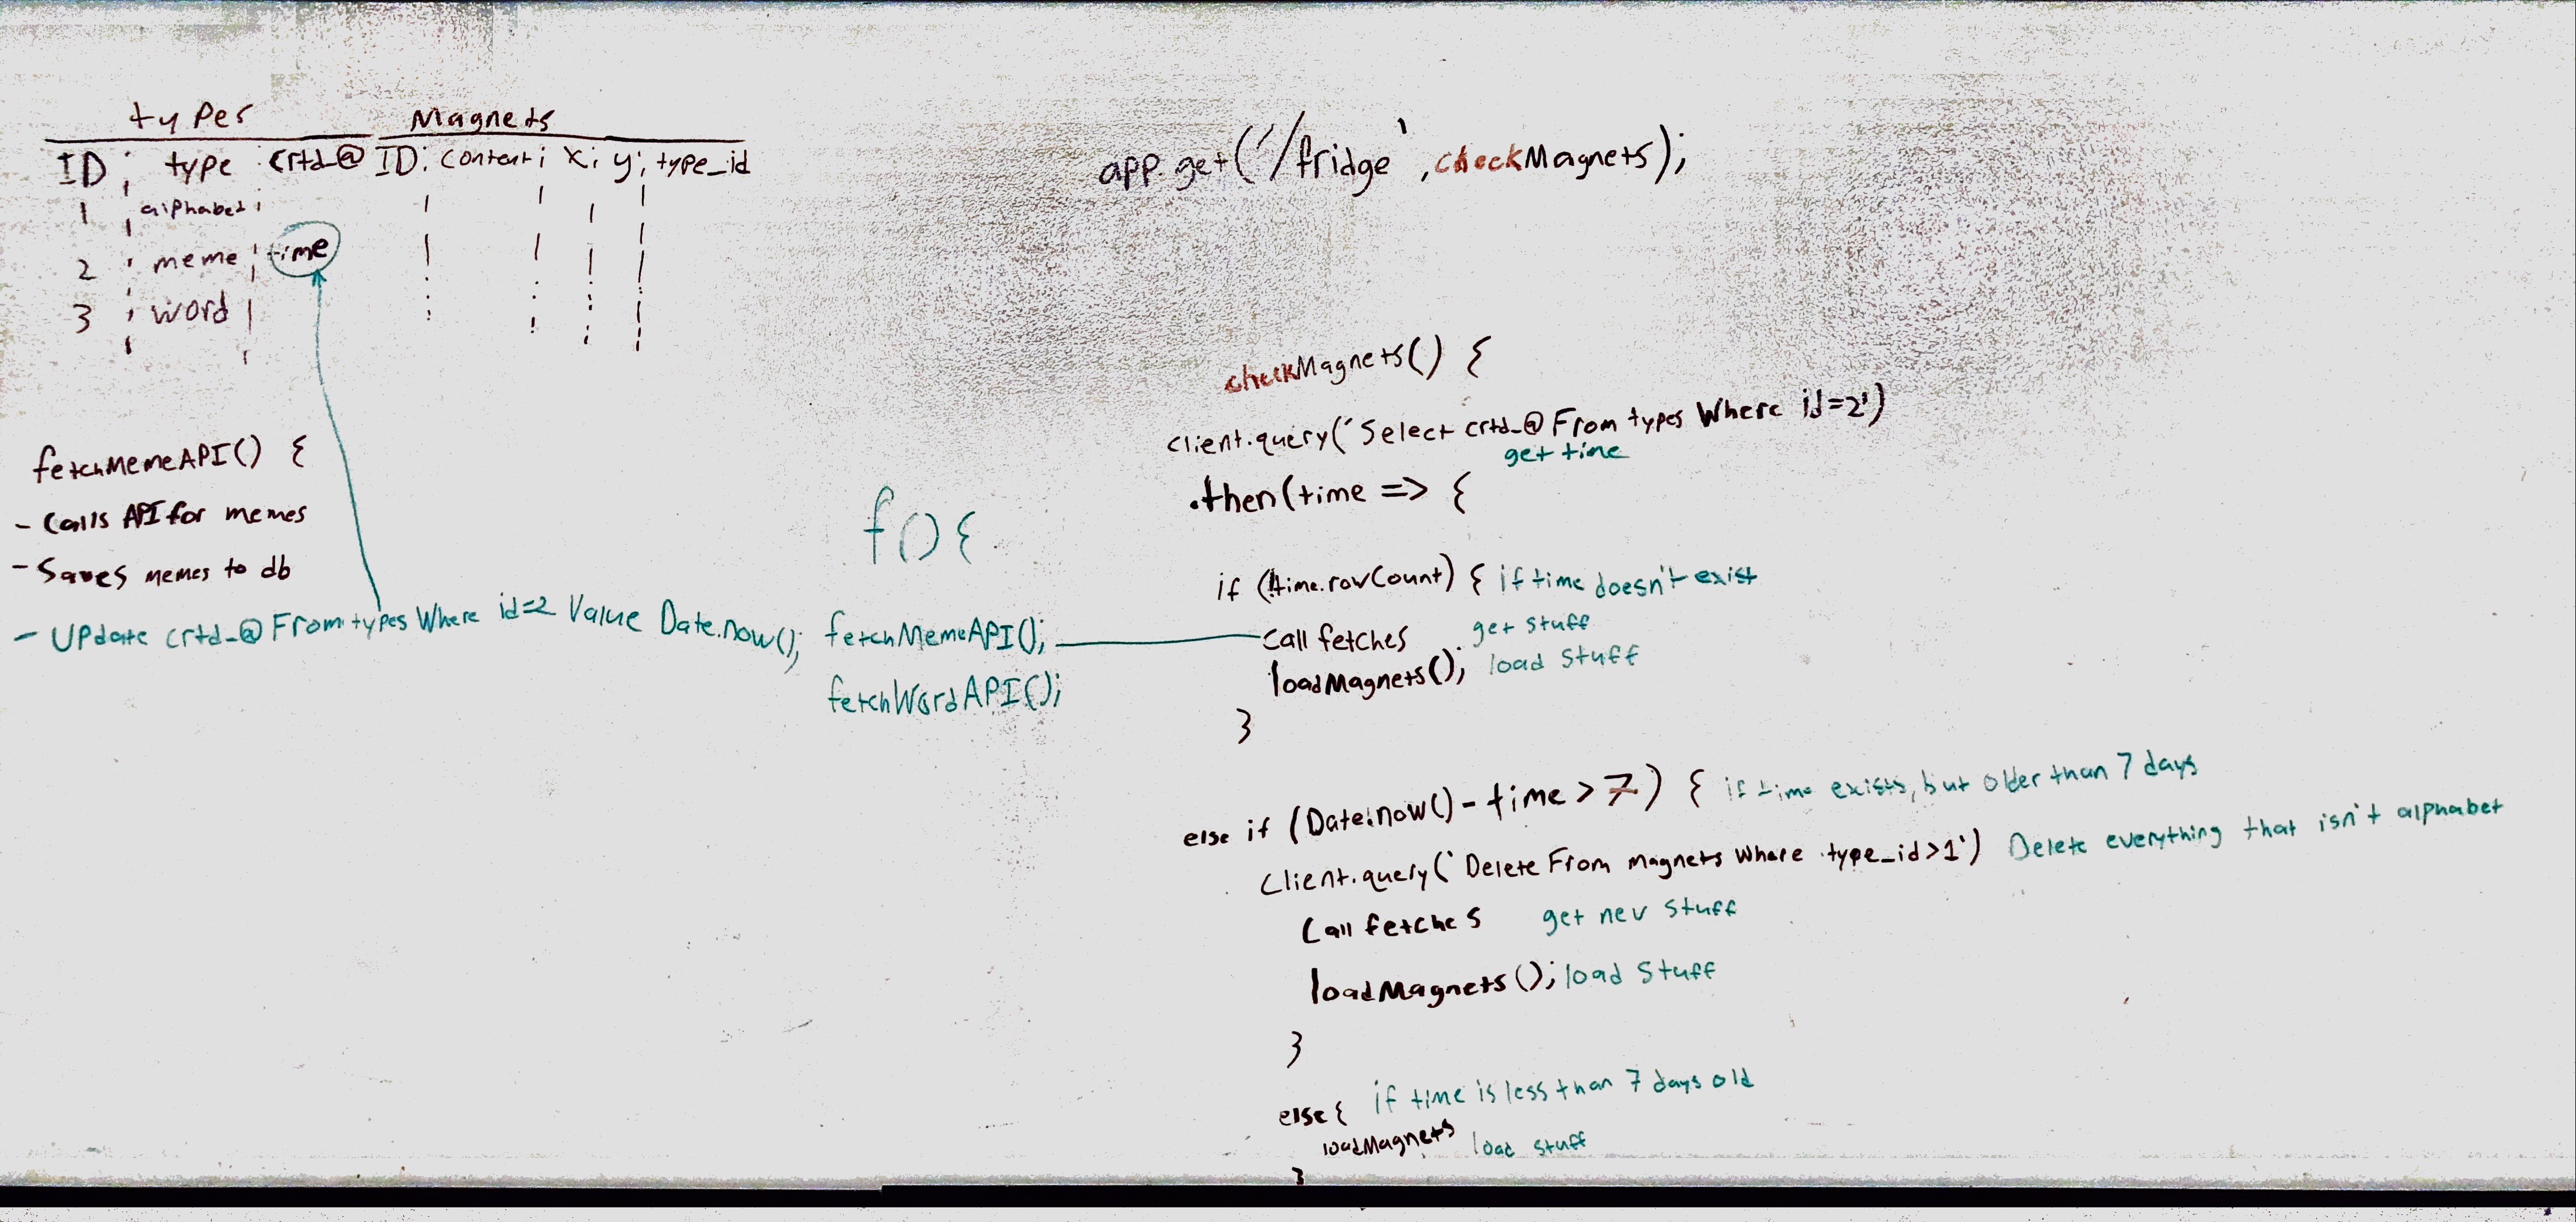 types
ID ; type ; crtd_@
1 ; alphabet ;
2 ; meme ; time
3 ; word ;
Magnets
ID; content; x; y; type_id
app.get('/fridge', checkMagnets);
fetchMemeAPI() {
- Calls API for memes
- Saves memes to db
- Update crtd_@ From types Where id=2 Value Date.now();
f() {
fetchMemeAPI();
fetchWordAPI();
checkMagnets() {
client.query('Select crtd_@ From types Where id=2')
get time
.then(time => {
if (!time.rowCount) { if time doesn't exist
call fetches get stuff
loadMagnets(); load stuff
}
else if (Date.now() - time > 7) { if time exists, but older than 7 days
Client.query('Delete From magnets Where type_id>1') Delete everything that isn't alphabet
Call fetches get new stuff
loadMagnets(); load stuff
}
else { if time is less than 7 days old
loadMagnets load stuff
}